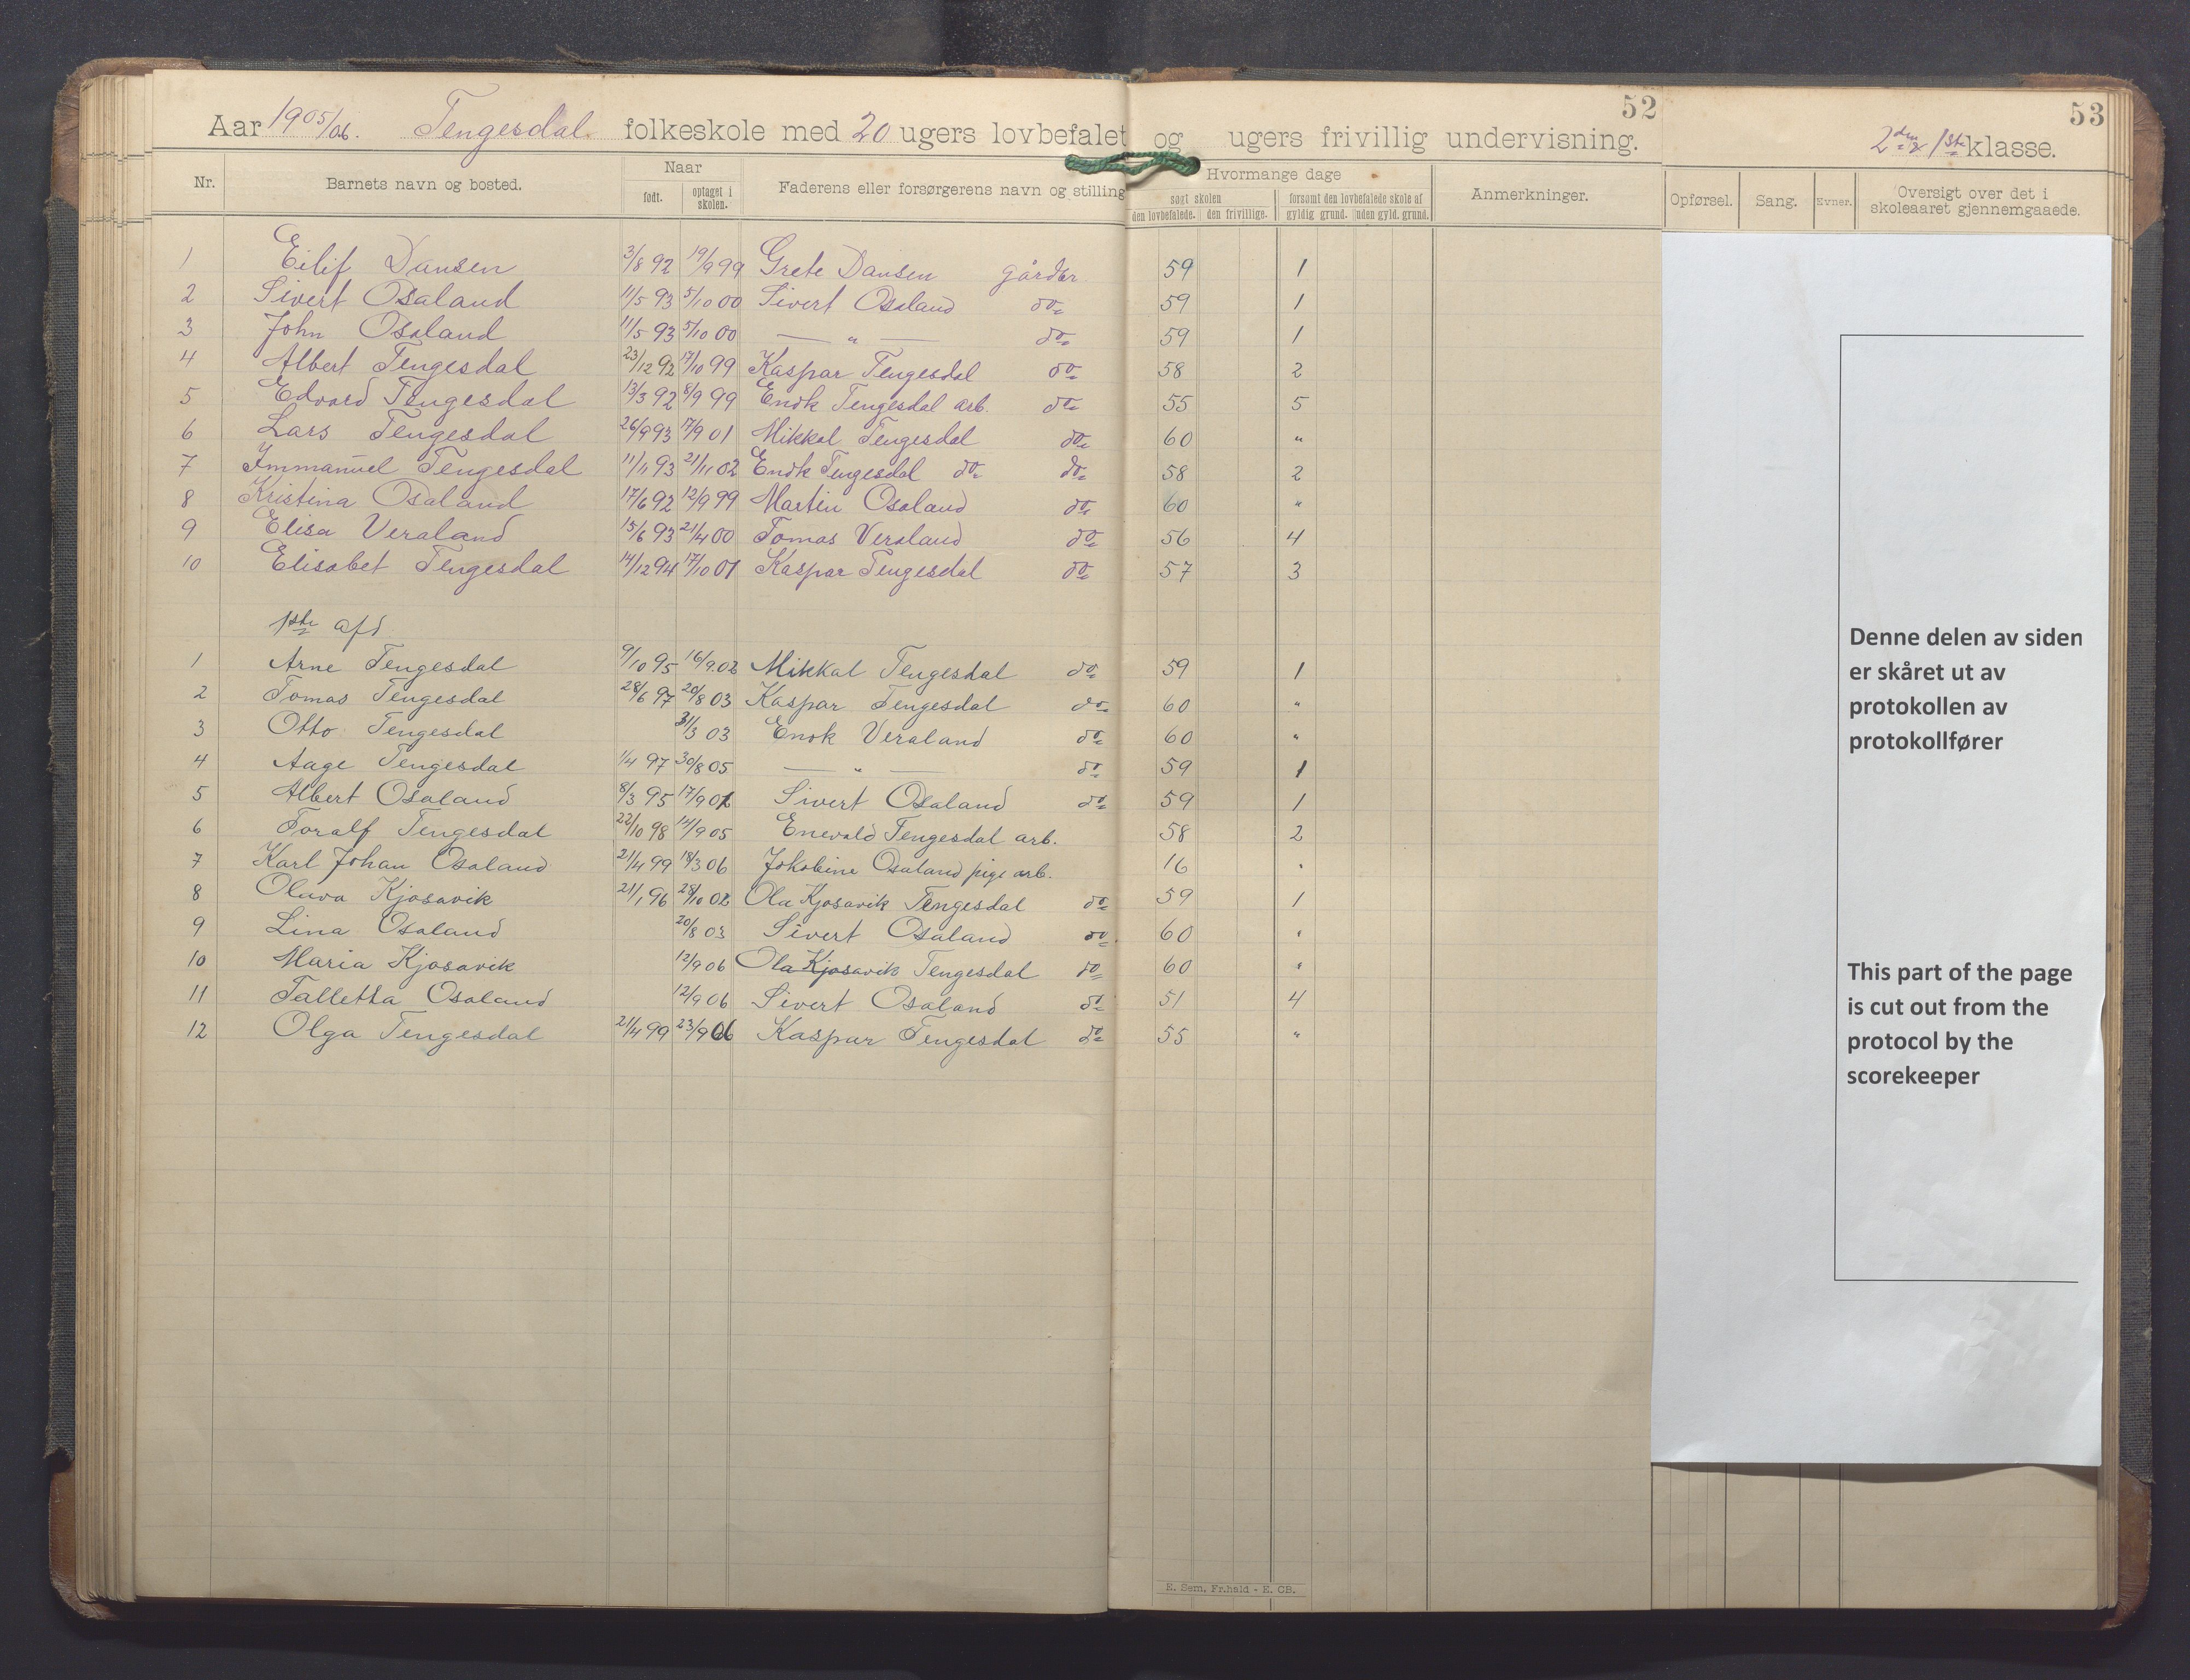 52
53
Aar 1905/06. Tengesdal folkeskole med 20 ugers lovbefalet og ugers frivillig undervisning. 2den & 1ste klasse.
Nr. Barnets navn og bosted. Naar født. optaget i skolen. Faderens eller forsørgerens navn og stilling Hvormange dage søgt skolen den lovbefalede. den frivillige. forsømt den lovbefalede skole af gyldig grund. uden gyld. grund. Anmerkninger. Opførsel. Sang. Evner. Oversigt over det i skoleaaret gjennemgaaede.
1 Eilif Dansen 3/8 92 19/9 99 Grete Dansen gårdbr. 59 1
2 Sivert Osaland 11/5 93 5/10 00 Sivert Osaland do 59 1
3 John Osaland 11/5 93 5/10 00 — " — do 59 1
4 Albert Tengesdal 23/12 92 17/10 99 Kaspar Tengesdal do 58 2
5 Edvard Tengesdal 13/3 92 8/9 99 Enok Tengesdal arb. do 55 5
6 Lars Tengesdal 26/9 93 17/9 01 Mikkal Tengesdal do 60 "
7 Immanuel Tengesdal 11/11 93 21/11 02 Enok Tengesdal do do 58 2
8 Kristina Osaland 17/6 92 12/9 99 Martin Osaland do 60 "
9 Elisa Veraland 15/6 93 21/4 00 Tomas Veraland do 56 4
10 Elisabet Tengesdal 14/12 94 17/10 01 Kaspar Tengesdal do 57 3
1ste afd.
1 Arne Tengesdal 9/10 95 16/9 02 Mikkal Tengesdal do 59 1
2 Tomas Tengesdal 28/6 97 20/8 03 Kaspar Tengesdal do 60 "
3 Otto Tengesdal 31/3 03 Enok Veraland do 60 "
4 Aage Tengesdal 1/4 97 30/8 05 — " — do 59 1
5 Albert Osaland 8/3 95 17/9 02 Sivert Osaland do 59 1
6 Toralf Tengesdal 22/10 98 14/9 05 Enevald Tengesdal arb. 58 2
7 Karl Johan Osaland 21/4 99 18/3 06 Jakobine Osaland pige arb. 16 "
8 Olava Kjosavik 21/1 96 28/10 02 Ola Kjosavik Tengesdal do 59 1
9 Lina Osaland 20/8 03 Sivert Osaland do 60 "
10 Maria Kjosavik 12/9 06 Ola Kjosavik Tengesdal do 60 "
11 Talletta Osaland 12/9 06 Sivert Osaland do 51 4
12 Olga Tengesdal 21/4 99 23/9 06 Kaspar Tengesdal do 55 "
Denne delen av siden
er skåret ut av
protokollen av
protokollfører
This part of the page
is cut out from the
protocol by the
scorekeeper
E. Sem, Fr.hald - E. CB.